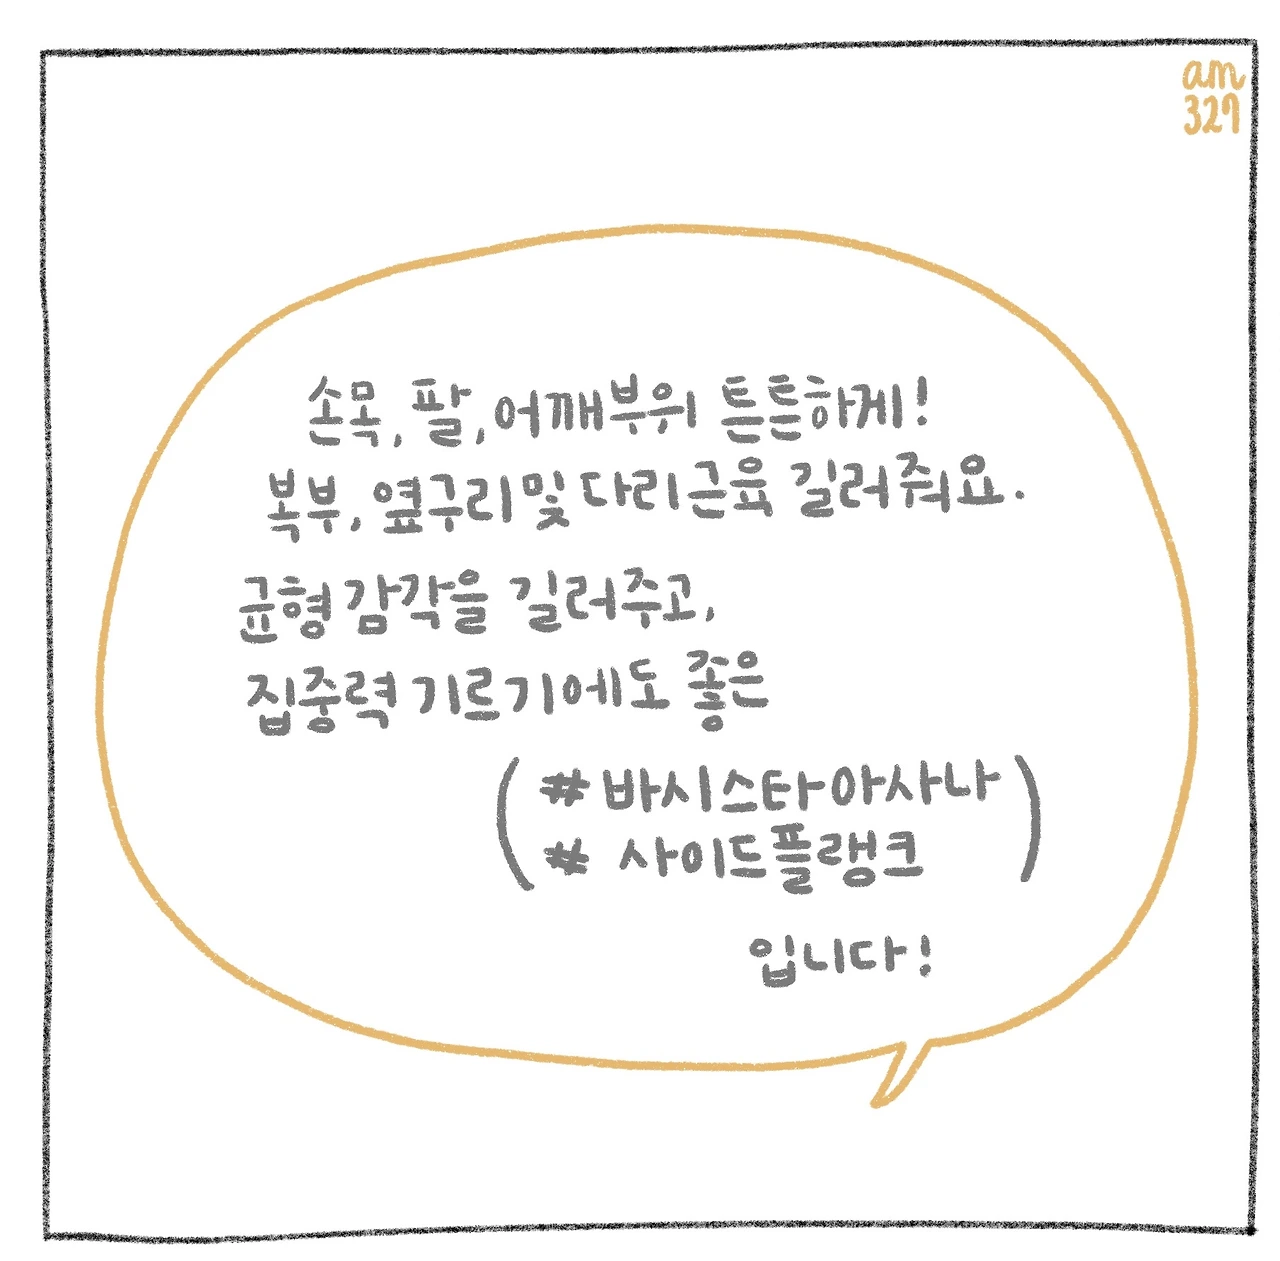 am
327
손목, 팔, 어깨부위 튼튼하게!
복부, 옆구리 및 다리근육 길러줘요.
균형 감각을 길러주고,
집중력 기르기에도 좋은
( #바시스타아사나
# 사이드플랭크 )
입니다!